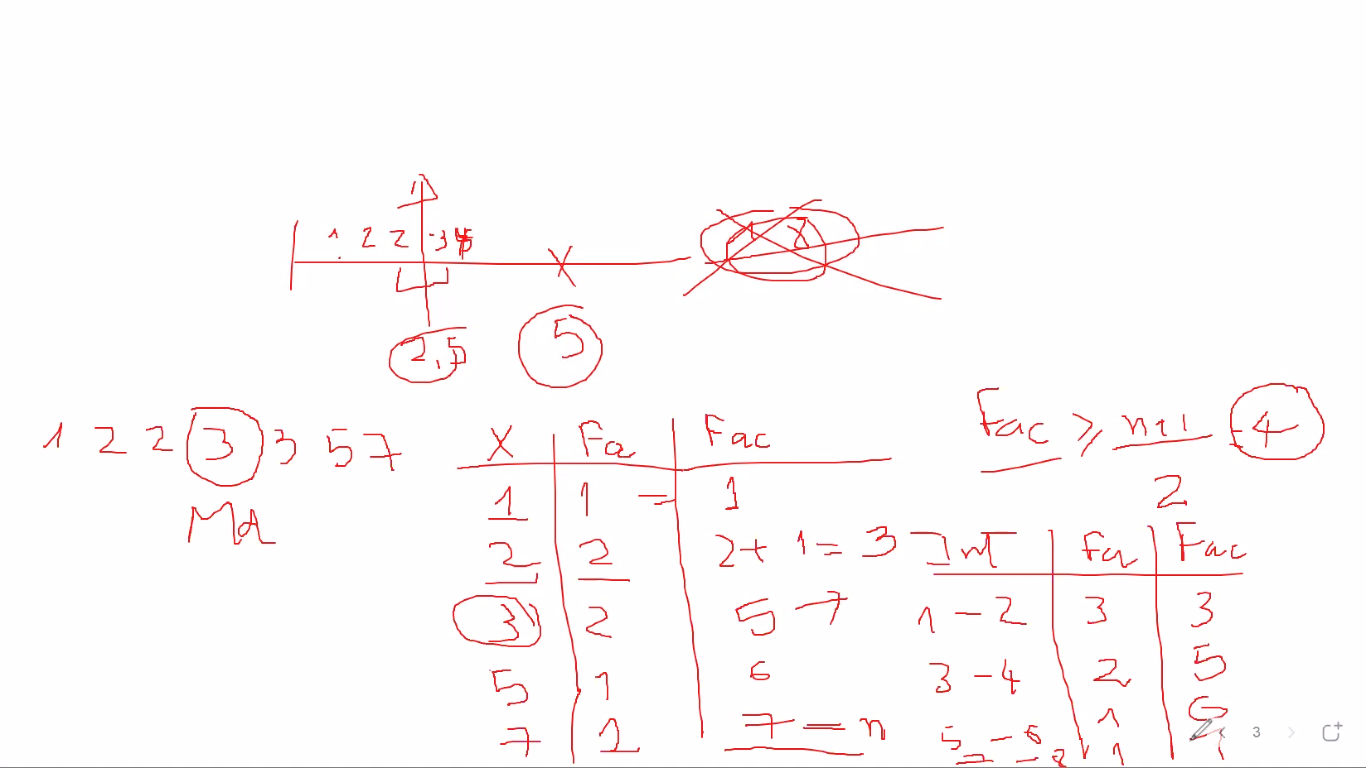 1 2 2 3 4
2,5
5
1 2 2 3 3 5 7
Md
X Fa Fac
1 1 = 1
2 2 2+1=3
3 2 5
5 1 6
7 1 7 = n
Fac ≥ n+1 = 4
2
Int Fa Fac
1-2 3 3
3-4 2 5
5-6 1 6
7-8 1
3